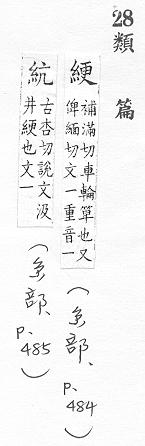 28 類篇
綆 補滿切車輪箄也又
俾緬切文一重音一
(糸部、p、484)
䋁 古杏切說文汲
井綆也文一
(糸部、p、485)